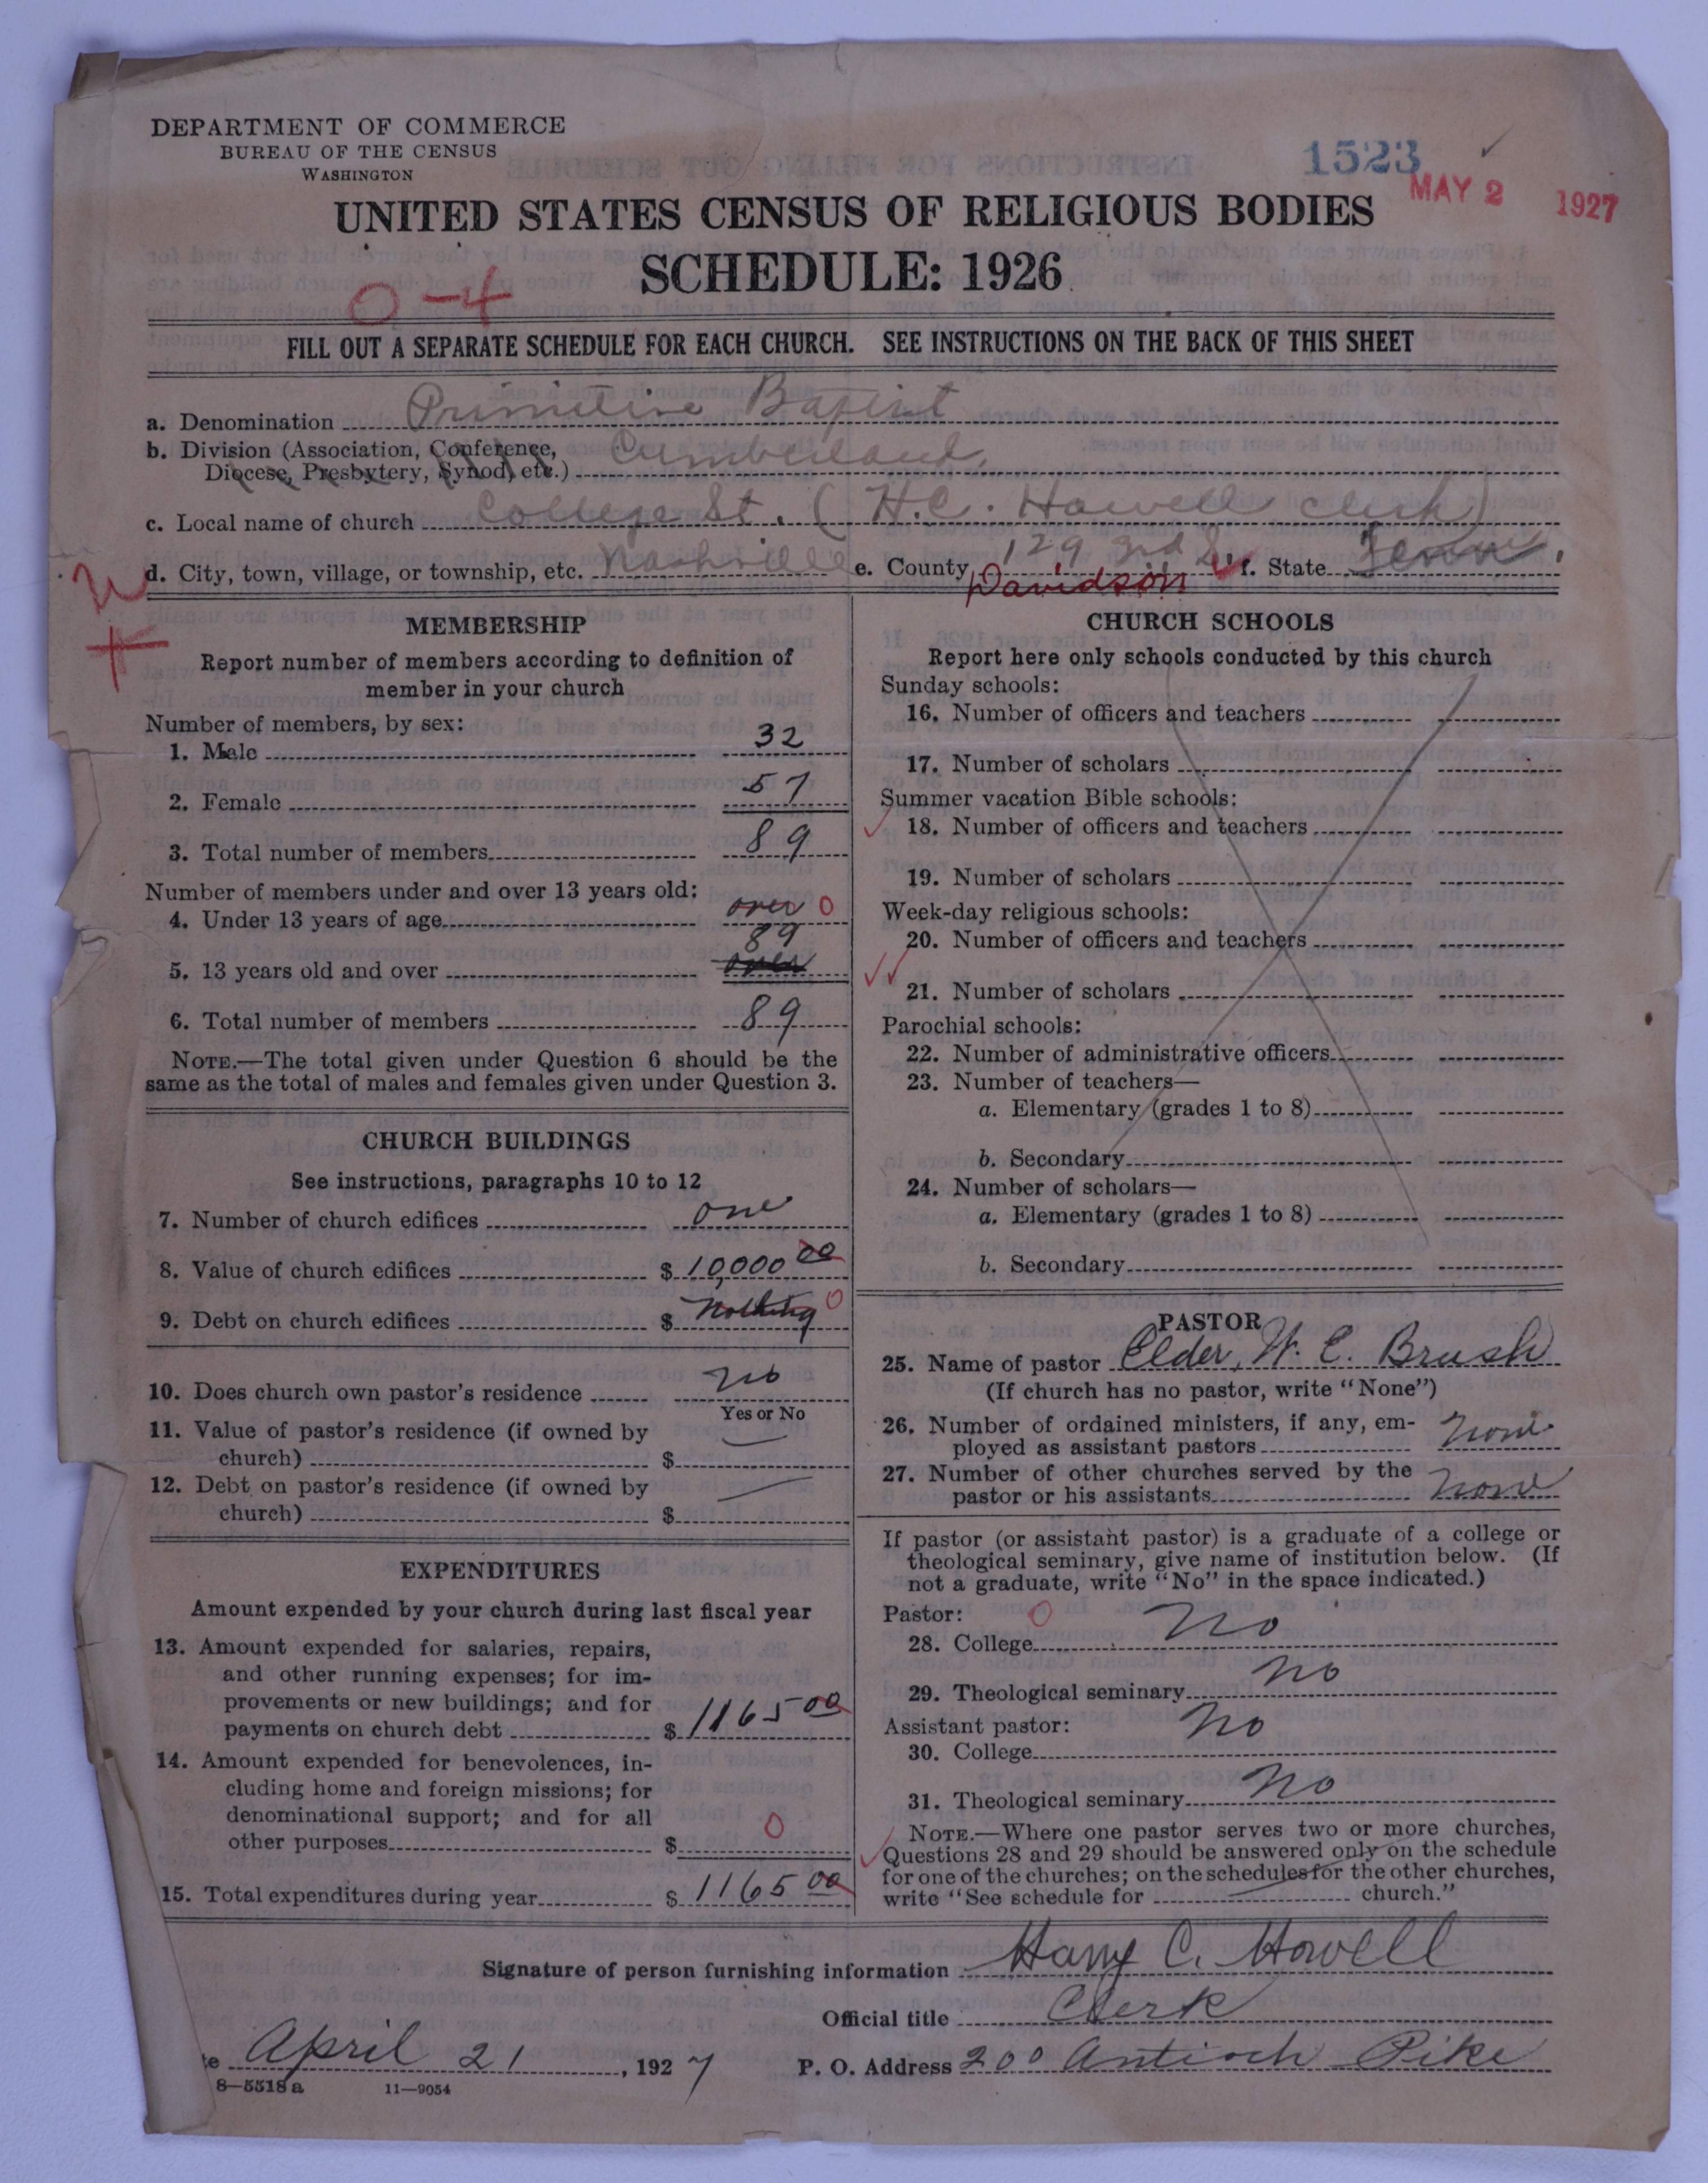 DEPARTMENT OF COMMERCE
BUREAU OF THE CENSUS
WASHINGTON
1523
MAY 2 1927
UNITED STATES CENSUS OF RELIGIOUS BODIES
SCHEDULE: 1926
0-4
FILL OUT A SEPARATE SCHEDULE FOR EACH CHURCH. SEE INSTRUCTIONS ON THE BACK OF THIS SHEET
a. Denomination Primitive Baptist
b. Division (Association, Conference, Diocese, Presbytery, Synod, etc.) Cumberland
c. Local name of church College St. (H.C. Howell clerk)
d. City, town, village, or township, etc. Nashville e. County 129 2nd Davidson f. State Tenn.
MEMBERSHIP
Report number of members according to definition of
member in your church
Number of members, by sex:
1. Male 32
2. Female 57
3. Total number of members 89
Number of members under and over 13 years old:
4. Under 13 years of age over 0
5. 13 years old and over 89 over
6. Total number of members 89
NOTE.—The total given under Question 6 should be the
same as the total of males and females given under Question 3.
CHURCH BUILDINGS
See instructions, paragraphs 10 to 12
7. Number of church edifices one
8. Value of church edifices $ 10,000 00
9. Debt on church edifices $ Nothing 0
10. Does church own pastor's residence No
Yes or No
11. Value of pastor's residence (if owned by
church) $
12. Debt on pastor's residence (if owned by
church) $
EXPENDITURES
Amount expended by your church during last fiscal year
13. Amount expended for salaries, repairs,
and other running expenses; for im-
provements or new buildings; and for
payments on church debt $ 1165 00
14. Amount expended for benevolences, in-
cluding home and foreign missions; for
denominational support; and for all
other purposes $ 0
15. Total expenditures during year $ 1165 00
CHURCH SCHOOLS
Report here only schools conducted by this church
Sunday schools:
16. Number of officers and teachers
17. Number of scholars
Summer vacation Bible schools:
18. Number of officers and teachers
19. Number of scholars
Week-day religious schools:
20. Number of officers and teachers
21. Number of scholars
Parochial schools:
22. Number of administrative officers
23. Number of teachers—
a. Elementary (grades 1 to 8)
b. Secondary
24. Number of scholars—
a. Elementary (grades 1 to 8)
b. Secondary
PASTOR
25. Name of pastor Elder, W. C. Brush
(If church has no pastor, write "None")
26. Number of ordained ministers, if any, em-
ployed as assistant pastors None
27. Number of other churches served by the
pastor or his assistants None
If pastor (or assistant pastor) is a graduate of a college or
theological seminary, give name of institution below. (If
not a graduate, write "No" in the space indicated.)
Pastor: 0
28. College No
29. Theological seminary No
Assistant pastor:
30. College No
31. Theological seminary No
NOTE.—Where one pastor serves two or more churches,
Questions 28 and 29 should be answered only on the schedule
for one of the churches; on the schedules for the other churches,
write "See schedule for church."
Signature of person furnishing information Harry C. Howell
Official title Clerk
te April 21, 1927 P. O. Address 200 Antioch Pike
8—5518 a 11—9054